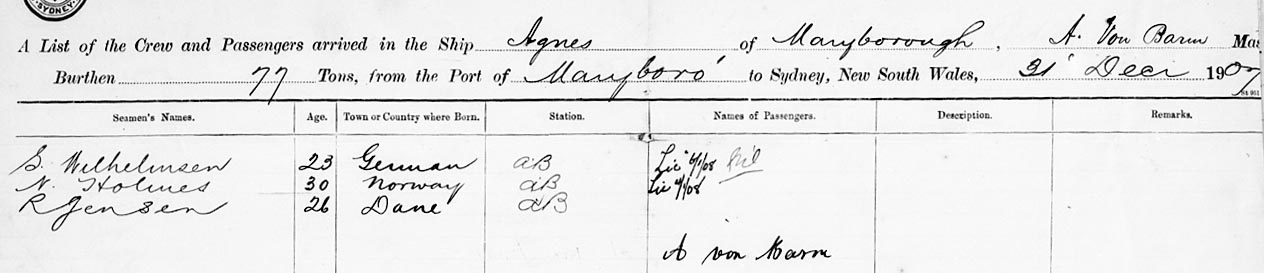 SYDNEY
A List of the Crew and Passengers arrived in the Ship Agnes of Maryborough, A. Von Barm Mas
Burthen 77 Tons, from the Port of Maryboro' to Sydney, New South Wales, 31st Decr 1907
Seamen's Names. Age. Town or Country where Born. Station. Names of Passengers. Description. Remarks.
S. Wilhelmsen 23 German AB Lic 6/1/08 Nil
N. Holmes 30 Norway AB Lic 4/1/08
R Jensen 26 Dane AB
A von Barm